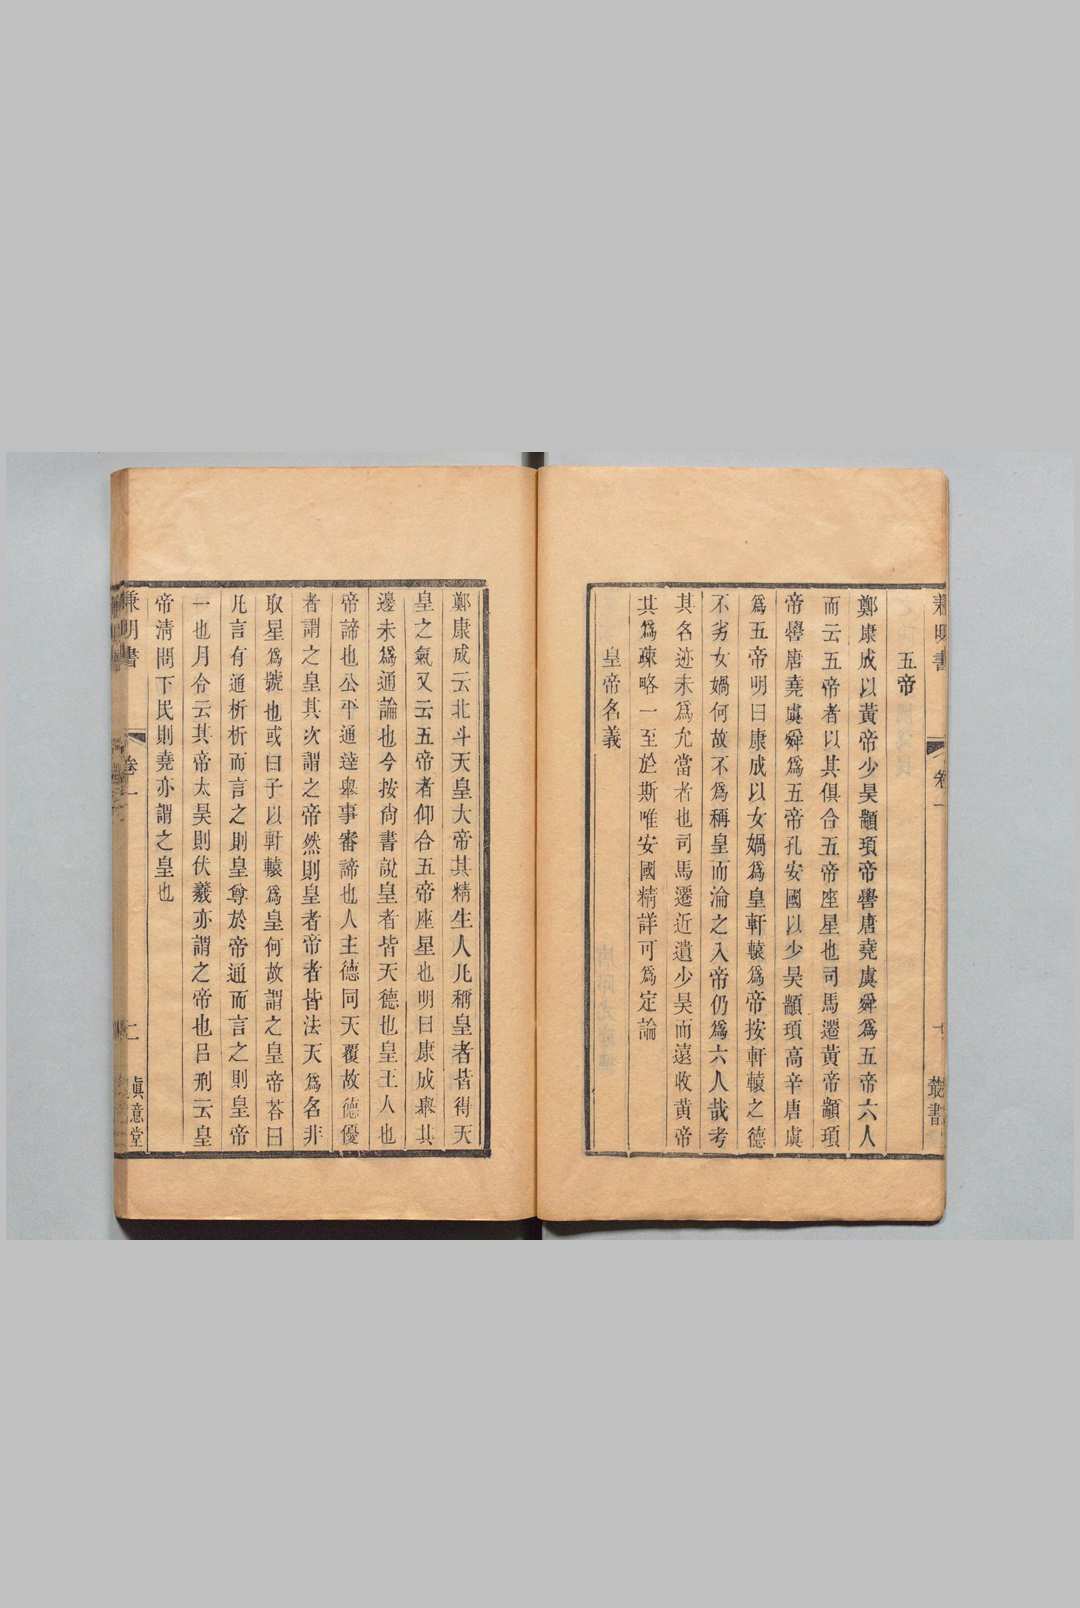 五帝
鄭康成以黃帝少昊顓頊帝嚳唐堯虞舜爲五帝六人
而云五帝者以其俱合五帝座星也司馬遷黃帝顓頊
帝嚳唐堯虞舜爲五帝孔安國以少昊顓頊高辛唐虞
爲五帝明曰康成以女媧爲皇軒轅爲帝按軒轅之德
不劣女媧何故不爲稱皇而淪之入帝仍爲六人哉考
其名迹未爲允當者也司馬遷近遺少昊而遠收黃帝
其爲疎略一至於斯唯安國精詳可爲定論
皇帝名義
鄭康成云北斗天皇大帝其精生人凡稱皇者皆得天
皇之氣又云五帝者仰合五帝座星也明曰康成舉其
邊未爲通論也今按尙書說皇者皆天德也皇王人也
帝諦也公平通達舉事審諦也人主德同天覆故德優
者謂之皇其次謂之帝然則皇者帝者皆法天爲名非
取星爲號也或曰子以軒轅爲皇何故謂之皇帝荅曰
凡言有通析析而言之則皇尊於帝通而言之則皇帝
一也月令云其帝太昊則伏羲亦謂之帝也呂刑云皇
帝淸問下民則堯亦謂之皇也
兼明書
卷一
二
眞意堂
兼明書
卷一
叢書